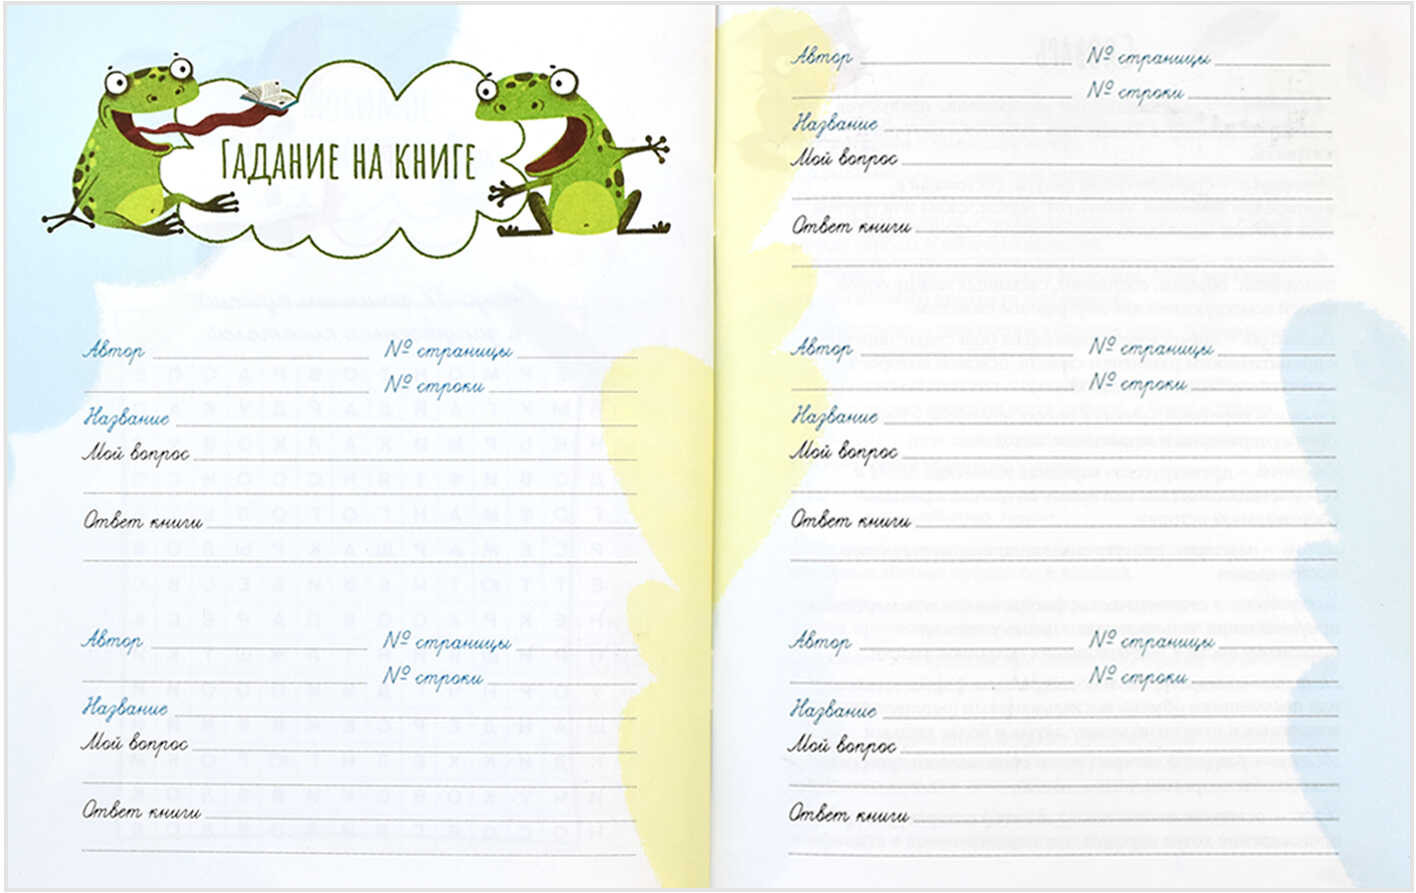 Гадание на книге
Автор № страницы
№ строки
Название
Мой вопрос
Ответ книги
Автор № страницы
№ строки
Название
Мой вопрос
Ответ книги
Автор № страницы
№ строки
Название
Мой вопрос
Ответ книги
Автор № страницы
№ строки
Название
Мой вопрос
Ответ книги
Автор № страницы
№ строки
Название
Мой вопрос
Ответ книги